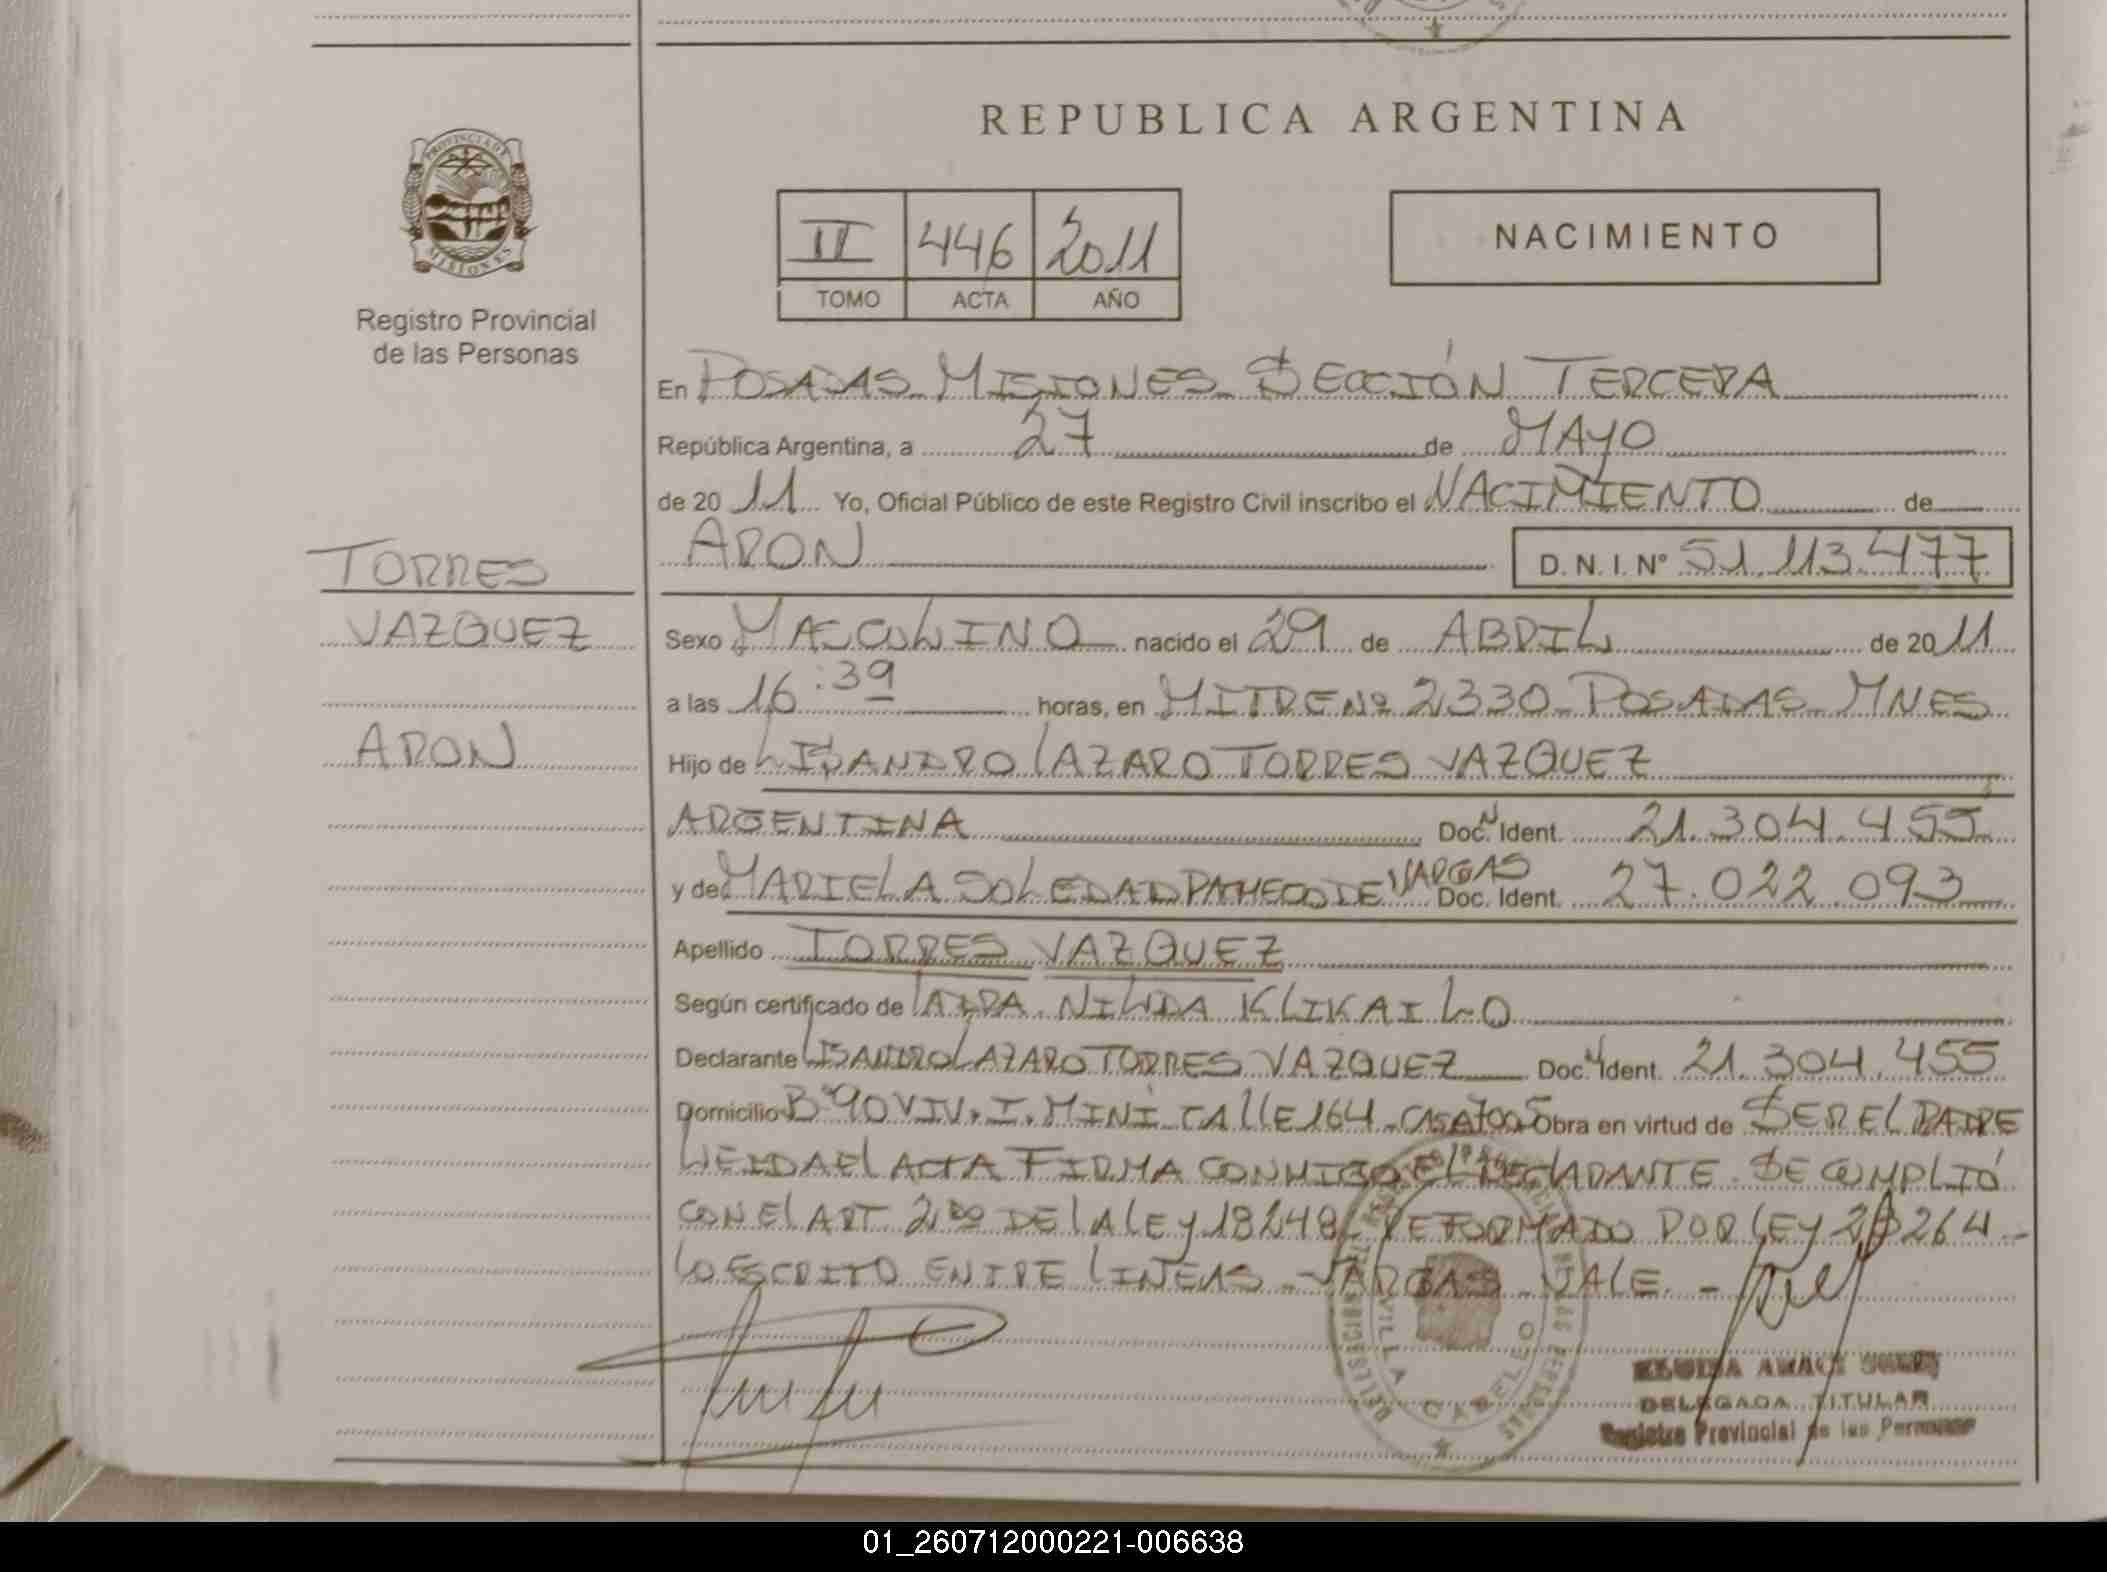 REPUBLICA ARGENTINA
PROVINCIA DE MISIONES
Registro Provincial
de las Personas
II 446 2011
TOMO ACTA AÑO
NACIMIENTO
En POSADAS MISIONES SECCIÓN TERCERA
República Argentina, a 27 de MAYO
de 2011 Yo, Oficial Público de este Registro Civil inscribo el NACIMIENTO de
ARON D. N. I. Nº 51.113.477
TORRES
VAZQUEZ
ARON
Sexo MASCULINO nacido el 29 de ABRIL de 2011
a las 16:39 horas, en MITRE Nº 2330 - POSADAS - MNES
Hijo de LISANDRO LAZARO TORRES VAZQUEZ
ARGENTINA Doc. N Ident. 21.304.455
y de MARIELA SOLEDAD PACHECO DE VARGAS Doc. Ident. 27.022.093
Apellido TORRES VAZQUEZ
Según certificado de NILDA KLIKAILO
Declarante LISANDRO LAZARO TORRES VAZQUEZ Doc. N Ident. 21.304.455
Domicilio Bº 90 VIV. I. MINÍ CALLE 164 - CASA Obra en virtud de SER EL PADRE
LEIDA EL ACTA FIRMA CONMIGO EL DECLARANTE. SE CUMPLIÓ
CON EL ART 2DO DE LA LEY 18248 REFORMADO POR LEY 264 -
LO ESCRITO ENTRE LINEAS - VARGAS - VALE. -
VILLA CABELLO
DELEGADA TITULAR
Registro Provincial de las Personas
01_260712000221-006638